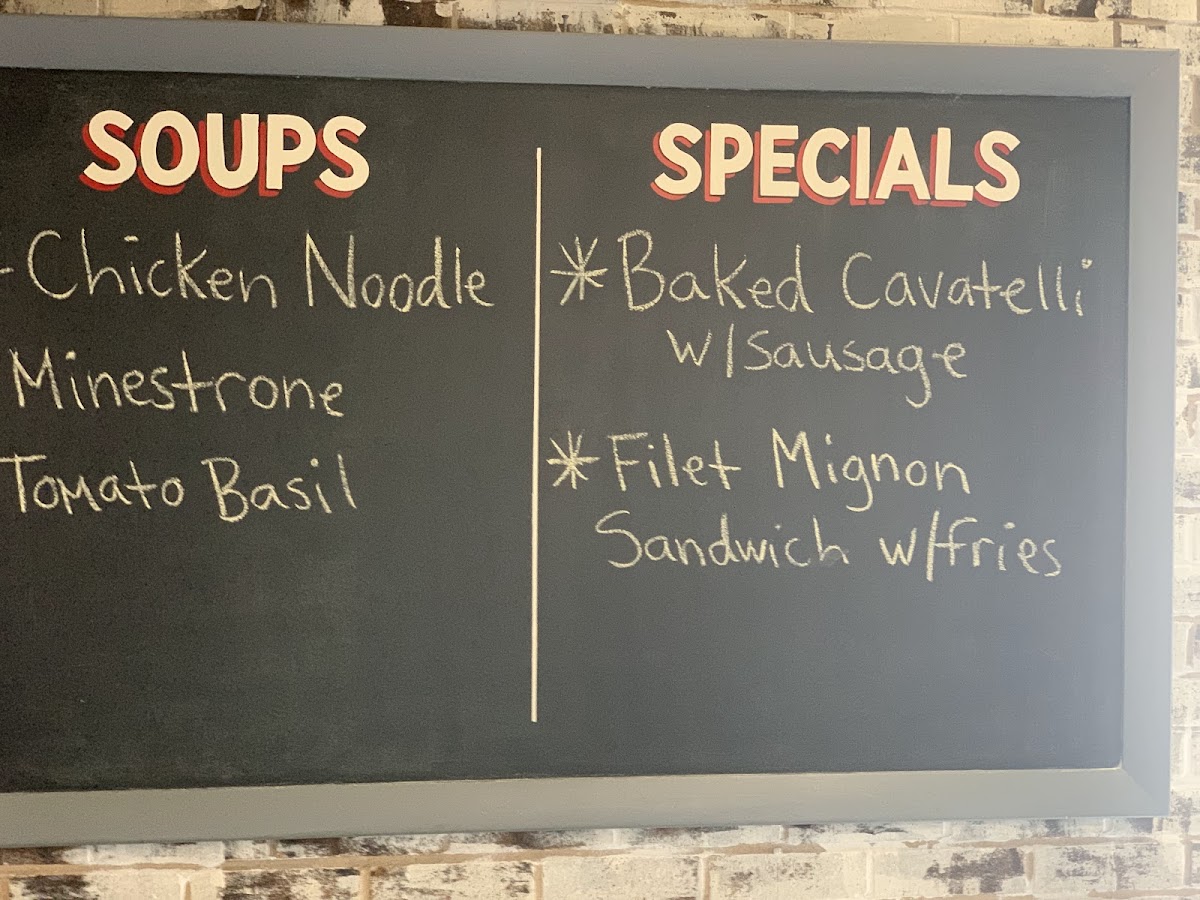 SOUPS
-Chicken Noodle
Minestrone
Tomato Basil
SPECIALS
*Baked Cavatelli
w/sausage
*Filet Mignon
Sandwich w/fries